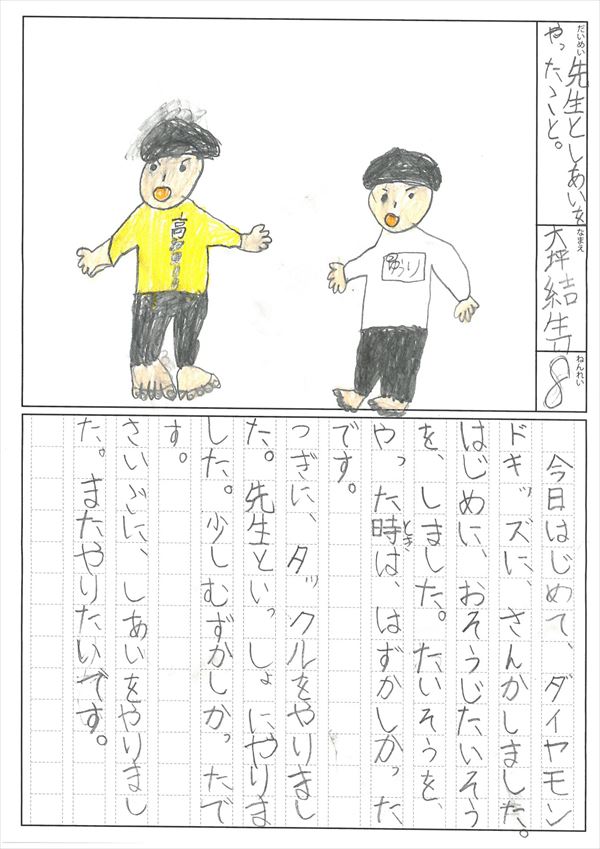 だいめい
先生としあいを
やったこと。
なまえ
大坪結生
ねんれい
8
ゆうり
今日はじめて、ダイヤモン
ドキッズに、さんかしました。
はじめに、おそうじたいそう
を、しました。たいそうを、
やった時は、はずかしかった
とき
です。
つぎに、タックルをやりまし
た。先生といっしょにやりま
した。少しむずかしかったで
す。
さいごに、しあいをやりまし
た。またやりたいです。